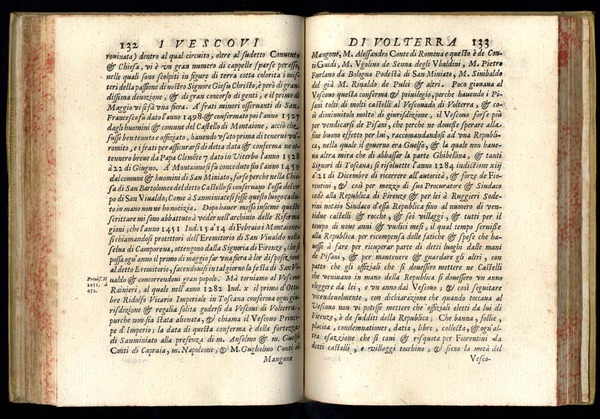 132 I VESCOVI
rovinata) dentro al qual circuito, oltre al sudetto Convento
& Chiesa, vi è un gran numero di cappelle sparse per esso,
nelle quali sono scolpiti in figure di terra cotta colorita i miste
teri della passione di nostro Signore Giesu Christo, è però di gran-
dissima devozione, & di gran concorso di genti, e il primo di
Maggio vi si fa una fiera. A frati minori osservanti di San
Francesco fu dato l'anno 1498. & confermato poi l'anno 1527
dagli huomini & comune del Castello di Montaione, acciò che
fussi ben tenuto e offitiato, havendo visto prima di tenervi un
romito, e i frati per assicurarsi di detta data & conferma ne ot-
tennero breve da Papa Clemẽte 7 dato in Viterbo l'anno 1528
à 22 di Giugno. A Montaione fu conceduto fino l'anno 1459
dal comune & huomini di San Miniato, forse perche nella Chie
sa di San Bartolomeo del detto Castello si conservano l'ossa del cor
po di San Vivaldo, Come à Samminiatesi fusse questo luogo cadu-
to in mano non mi è notitia. Dopo haver messo insieme queste
scritture mi sono abbattuto à veder nell'archivio delle Riforma
gioni, che l'anno 1451 Ind. 15 a 14 di Febraio i Montaione-
si chiamandosi protettori dell'Eremitorio di San Vivaldo nella
selva di Camporena, ottengono dalla Signoria di Firenze, che si
possa ogn'anno il primo di maggio far una fiera à lor disposizione
al detto Eremitorio, facendovisi in tal giorno la festa di San Vi-
valdo & concorrendovi gran popolo. Mà torniamo al Vescovo
Rainieri, al quale l'anno 1282 Ind. x il primo d'Otto-
bre Ridolfo Vicario Imperiale in Toscana conferma ogni giu-
risdizione & regalia solita godersi da' Vescovi di Volterra,
purche non sia stata alienata, & chiama il Vescovo Prenci-
pe d'Imperio; la data di questa conferma è della fortezza
di Samminiato alla presenza di m. Anselmo & m. Guelfo
Conti di Capraia, m. Napoleone, & M. Guglielmo Conti di
Mangone
1451. à
DI VOLTERRA 133
Mangone, M. Alessandro Conte di Romena e questo è de Con-
ti Guidi, M. Ugolino de Senno degli Ubaldini, M. Pietro
Furlano da Bologna Podestà di San Miniato, M. Sinibaldo
del già M. Rinaldo de Pulci & altri. Poco giovana al
Vescovo questa conferma & privilegio, perche havendo i Pi-
sani tolti di molti castelli al Vescouado di Volterra, & co-
sì diminuitolo molto di giurisdizione, il Vescovo forse più
per vendicarsi de Pisani, che perche ne dovesse sperare alla-
suo buono effetto per lui, raccomandandosi ad una Republi-
ca, nella quale il governo era Guelfo, & la quale non hav-
veua altra mira che di abbassar la parte Ghibellina, & tanti
Signori di Toscana; si risoluette l'anno 1284 indictione xiij
à 21 di Dicembre di ricorrere all'autorità, & forze de Fio-
rentini, & così per mezzo di suo Procuratore & Sindaco
cede alla Republica di Firenze & per lei à Ruggieri Sode-
rini notaio Sindaco d'essa Republica fino al numero di ven-
tidue castelli & rocche, & sei villaggi, & tutti per il
tempo di nove anni & undici mesi, il qual tempo fruisse
alla Republica per ricompensa delle fatiche & spese che ha-
uesse à fare per ricuperar parte di detti luoghi dalle mani
de Pisani, & per mantenere & guardare gli altri, con
patto che gli offitiali che si douessero mettere ne Castelli
che venissero in mano della Republica li douessero un anno
eleggere da lei, e un anno dal Vescovo; & così seguitare
vicendevolmente, con dichiarazione che quando toccana al
Vescovo non vi potesse mettere che offitiali eletti da lui di
Firenze, ò de sudditi della Republica: Che banna, follie,
placita, condemnationes, datia, libre, collecta, & ogn'al-
tra esazzione che si cavi & riquota per Fiorentini da
detti castelli, e villaggi tocchino, & sieno la metà del
Vesco-